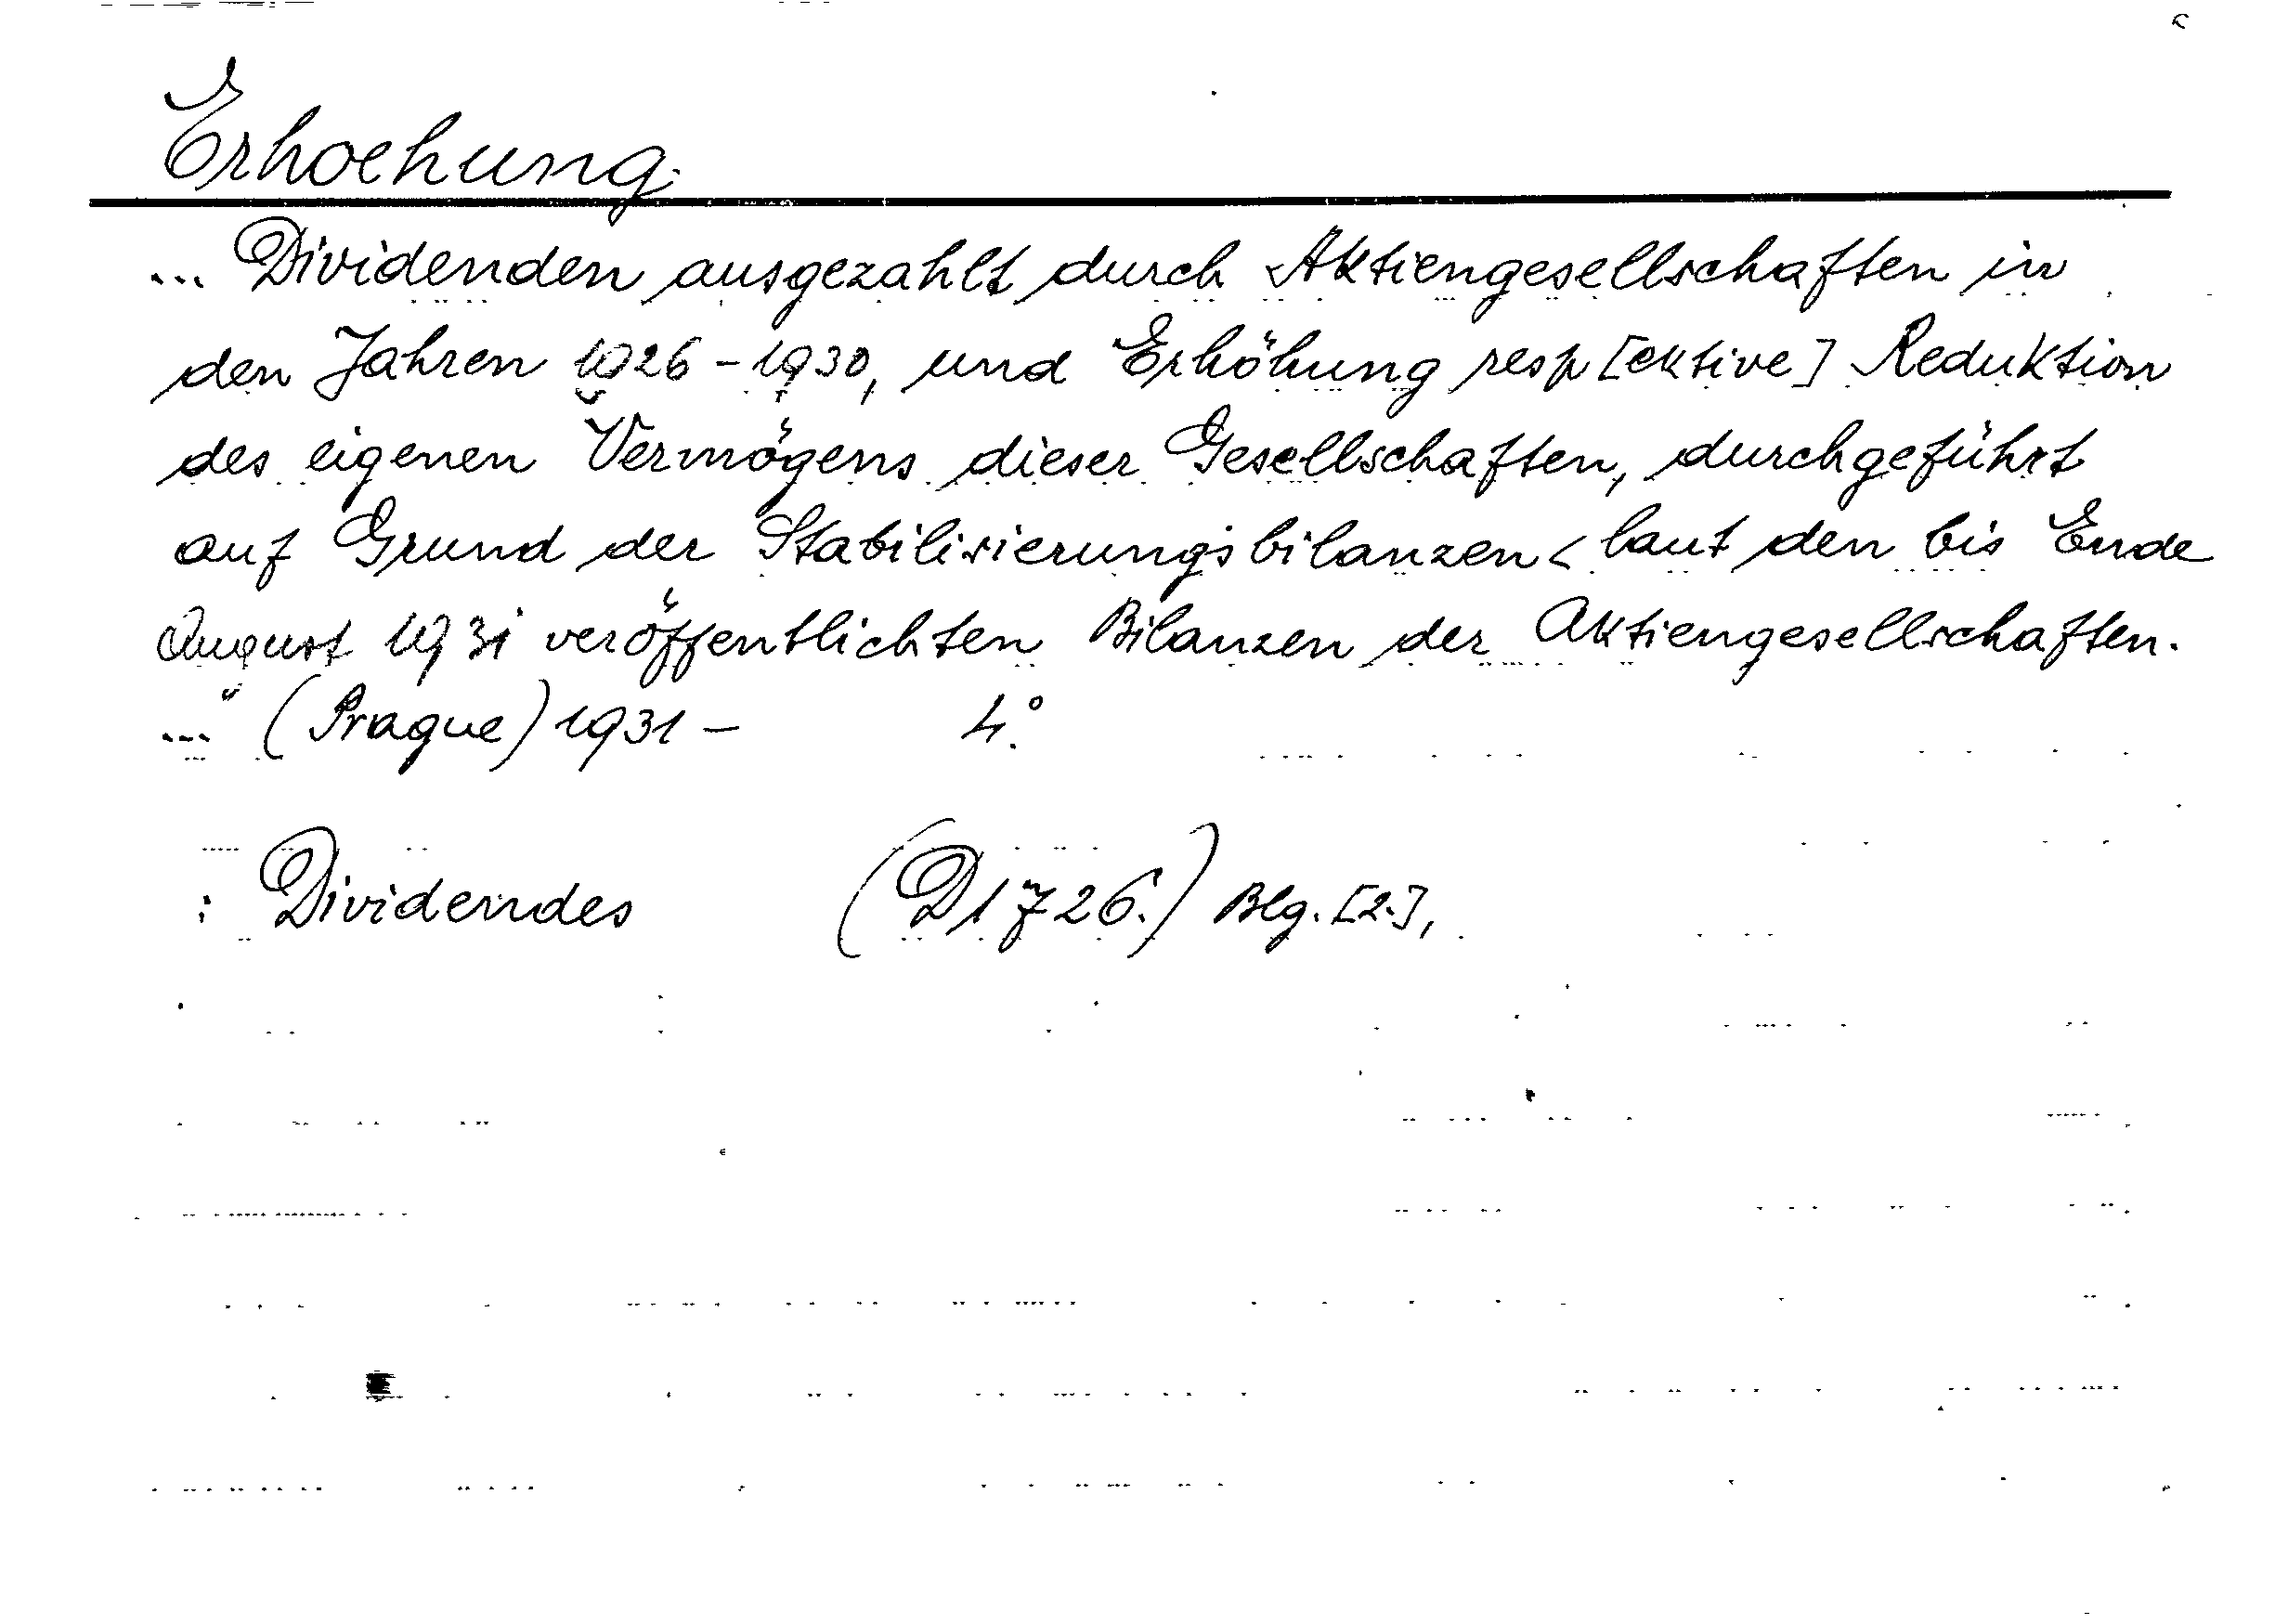 Erhoehung.
... Dividenden ausgezahlt durch Aktiengesellschaften in
den Jahren 1926-1930, und Erhöhung resp[ektive] Reduktion
des eigenen Vermögens dieser Gesellschaften, durchgeführt
auf Grund der Stabilisierungsbilanzen < laut den bis Ende
August 1931 veröffentlichten Bilanzen der Aktiengesellschaften.
..." (Prague) 1931 – 4°.
: Dividendes (D1726.) Blg. [2.],